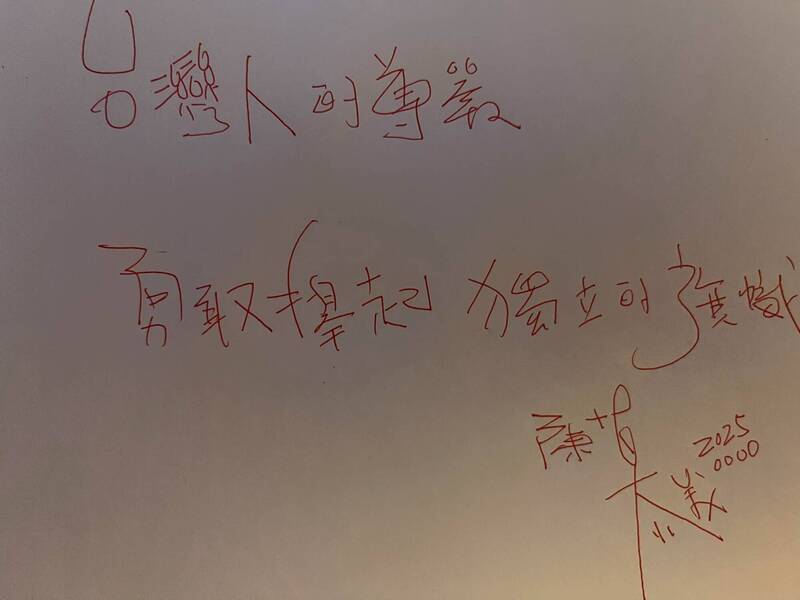 台灣人的尊嚴
勇敢擇起 獨立的旗幟
陳
2025
0000